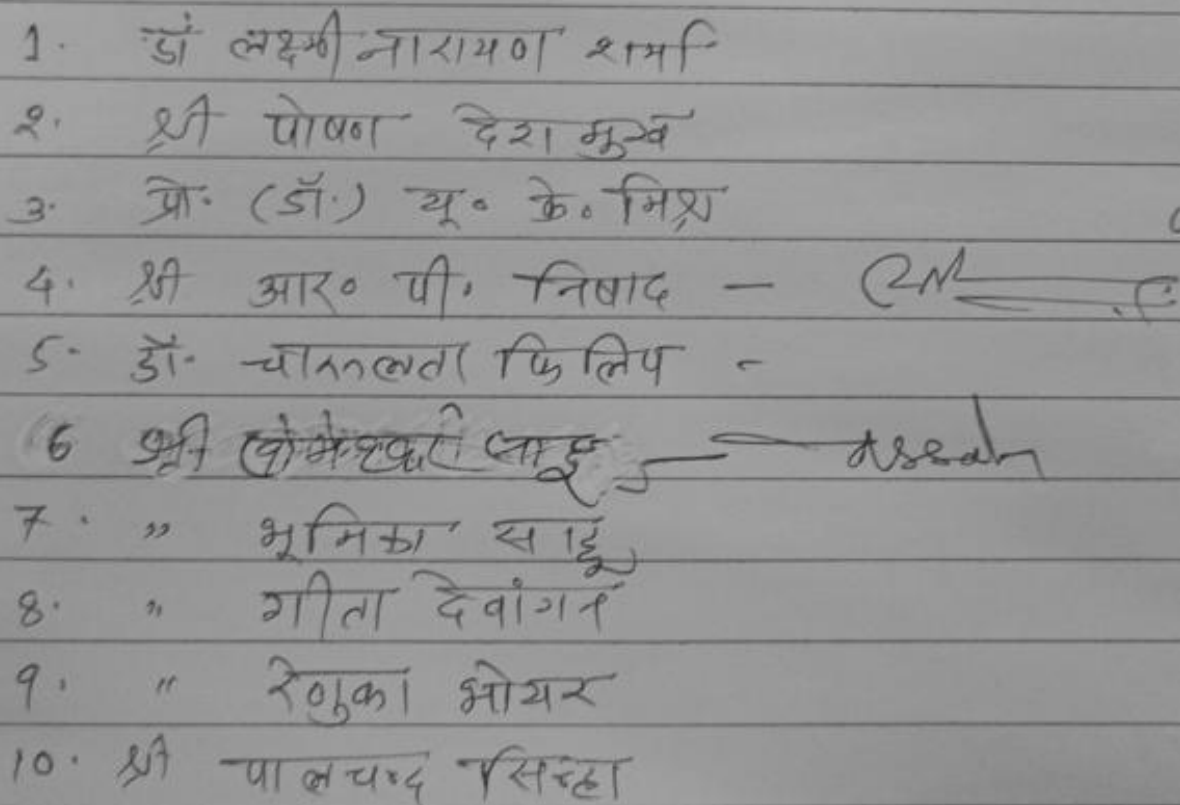 1. डॉ लक्ष्मी नारायण शर्मा
2. श्री पोषण देशमुख
3. प्रो. (डॉ.) यू. के. मिश्र
4. श्री आर. पी. निषाद -
5. डॉ. चारुलता फिलिप -
6 श्री साहू
7. " भूमिका साहू
8. " गीता देवांगन
9. " रेणुका भोयर
10. श्री पालचन्द सिन्हा